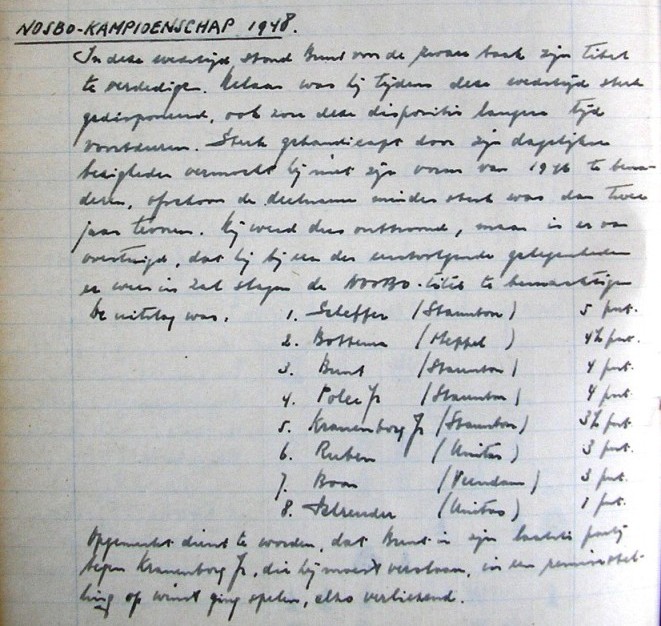 NOSBO-KAMPIOENSCHAP 1948.
In deze wedstrijd stond Bunt voor de zware taak zijn titel
te verdedigen. Helaas was hij tijdens deze wedstrijd sterk
gedisponeerd, ook zou deze dispositie langere tijd
voortduren. Sterk gehandicapt door zijn dagelijkse
bezigheden vermocht hij niet zijn vorm van 1946 te bena-
deren, ofschoon de deelname minder sterk was dan twee
jaar tevoren. Hij werd dus onttroond, maar is er van
overtuigd, dat hij bij een der eerstvolgende gelegenheden
er weer in zal slagen de NOSBO-titel te bemachtigen
De uitslag was. 1. Scheffer (Staunton) 5 pnt.
2. Bottema (Meppel) 4½ pnt.
3. Bunt (Staunton) 4 pnt.
4. Polee Jr (Staunton) 4 pnt.
5. Kranenborg Jr (Staunton) 3½ pnt
6. Ruben (Unitas) 3 pnt.
7. Boas (Veendam) 3 pnt.
8. (Unitas) 1 pnt.
Opgemerkt dient te worden, dat Bunt in zijn laatste partij
tegen Kranenborg Jr, die hij moest verslaan, in een remisestel-
ling op winst ging spelen, alzo verliezend.